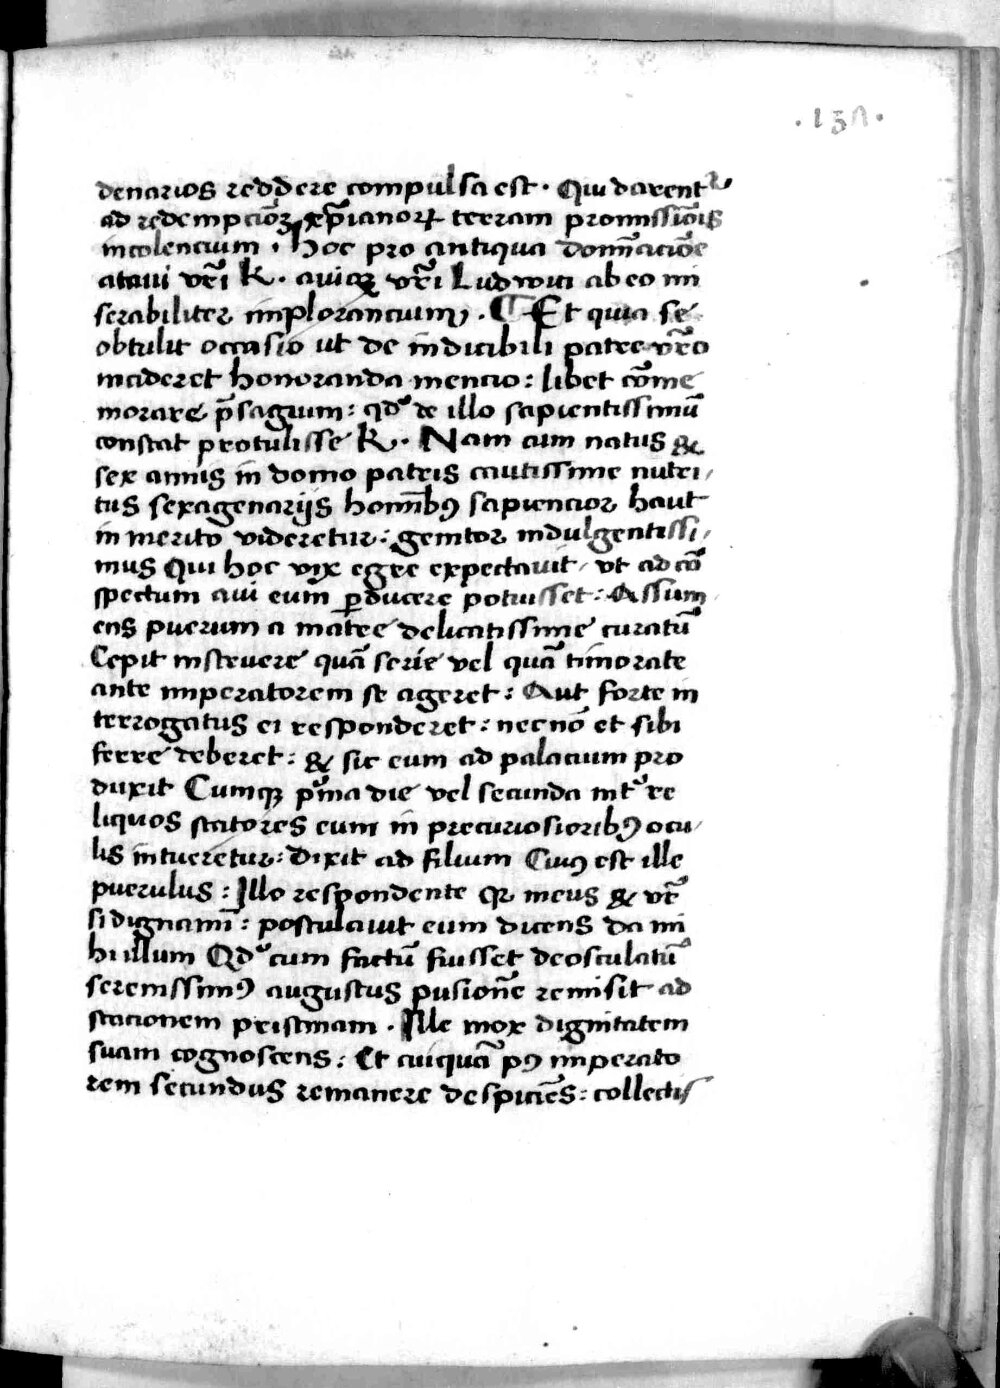 .157.
denarios reddere compulsa est. Qui darent᷑
ad redempcio᷑nꝫ xp̄ianoꝝ terram promissio᷑is
incolencium. Hoc pro antiqua domīacio᷑e
ataui vr̄i K. auiqꝫ vr̄i Ludwici ab eo mi
serabiliter implorancium. Et quia se
obtulit occasio ut de indicibili patre vr̄o
incideret honoranda mencio: libet cōme
morare p̄sagium: qdͦ de illo sapientissimū
constat protulisse K. Nam cum natus &
sex annis in domo patris cautissime nutri,
tus sexagenarijs hom̄ibꝰ sapiencior haut
inmerito videretur: genitor indulgentissi,
mus Qui hoc vix egre expectauit, vt ad cō
spectum aui eum ꝑducere potuisset: Assum,
ens puerum a matre delicatissime curatū
Cepit instruere quā serie vel quā timorate
ante imperatorem se ageret: Aut forte in
terrogatus ei responderet: necnō et sibi
ferre deberet: & sic eum ad palacium pro
duxit Cumqꝫ pͥma die vel secunda int͛ re
liquos statores eum imperator curiosioribꝰ ocu,
lis intueretur: dixit ad filium Cuiꝰ est ille
puerulus: Illo respondente Qꝛ meus & vr̄
si dignamī: postulauit eum dicens da mi
hi illum Qdͦ cum factū fuisset deosculatū
serenissimꝰ augustus pusionē remisit ad
stacionem pristinam. Ille mox dignitatem
suam cognoscens: Et cuiquā pꝰ imperato
rem secundus remanere despiciēs: collectis